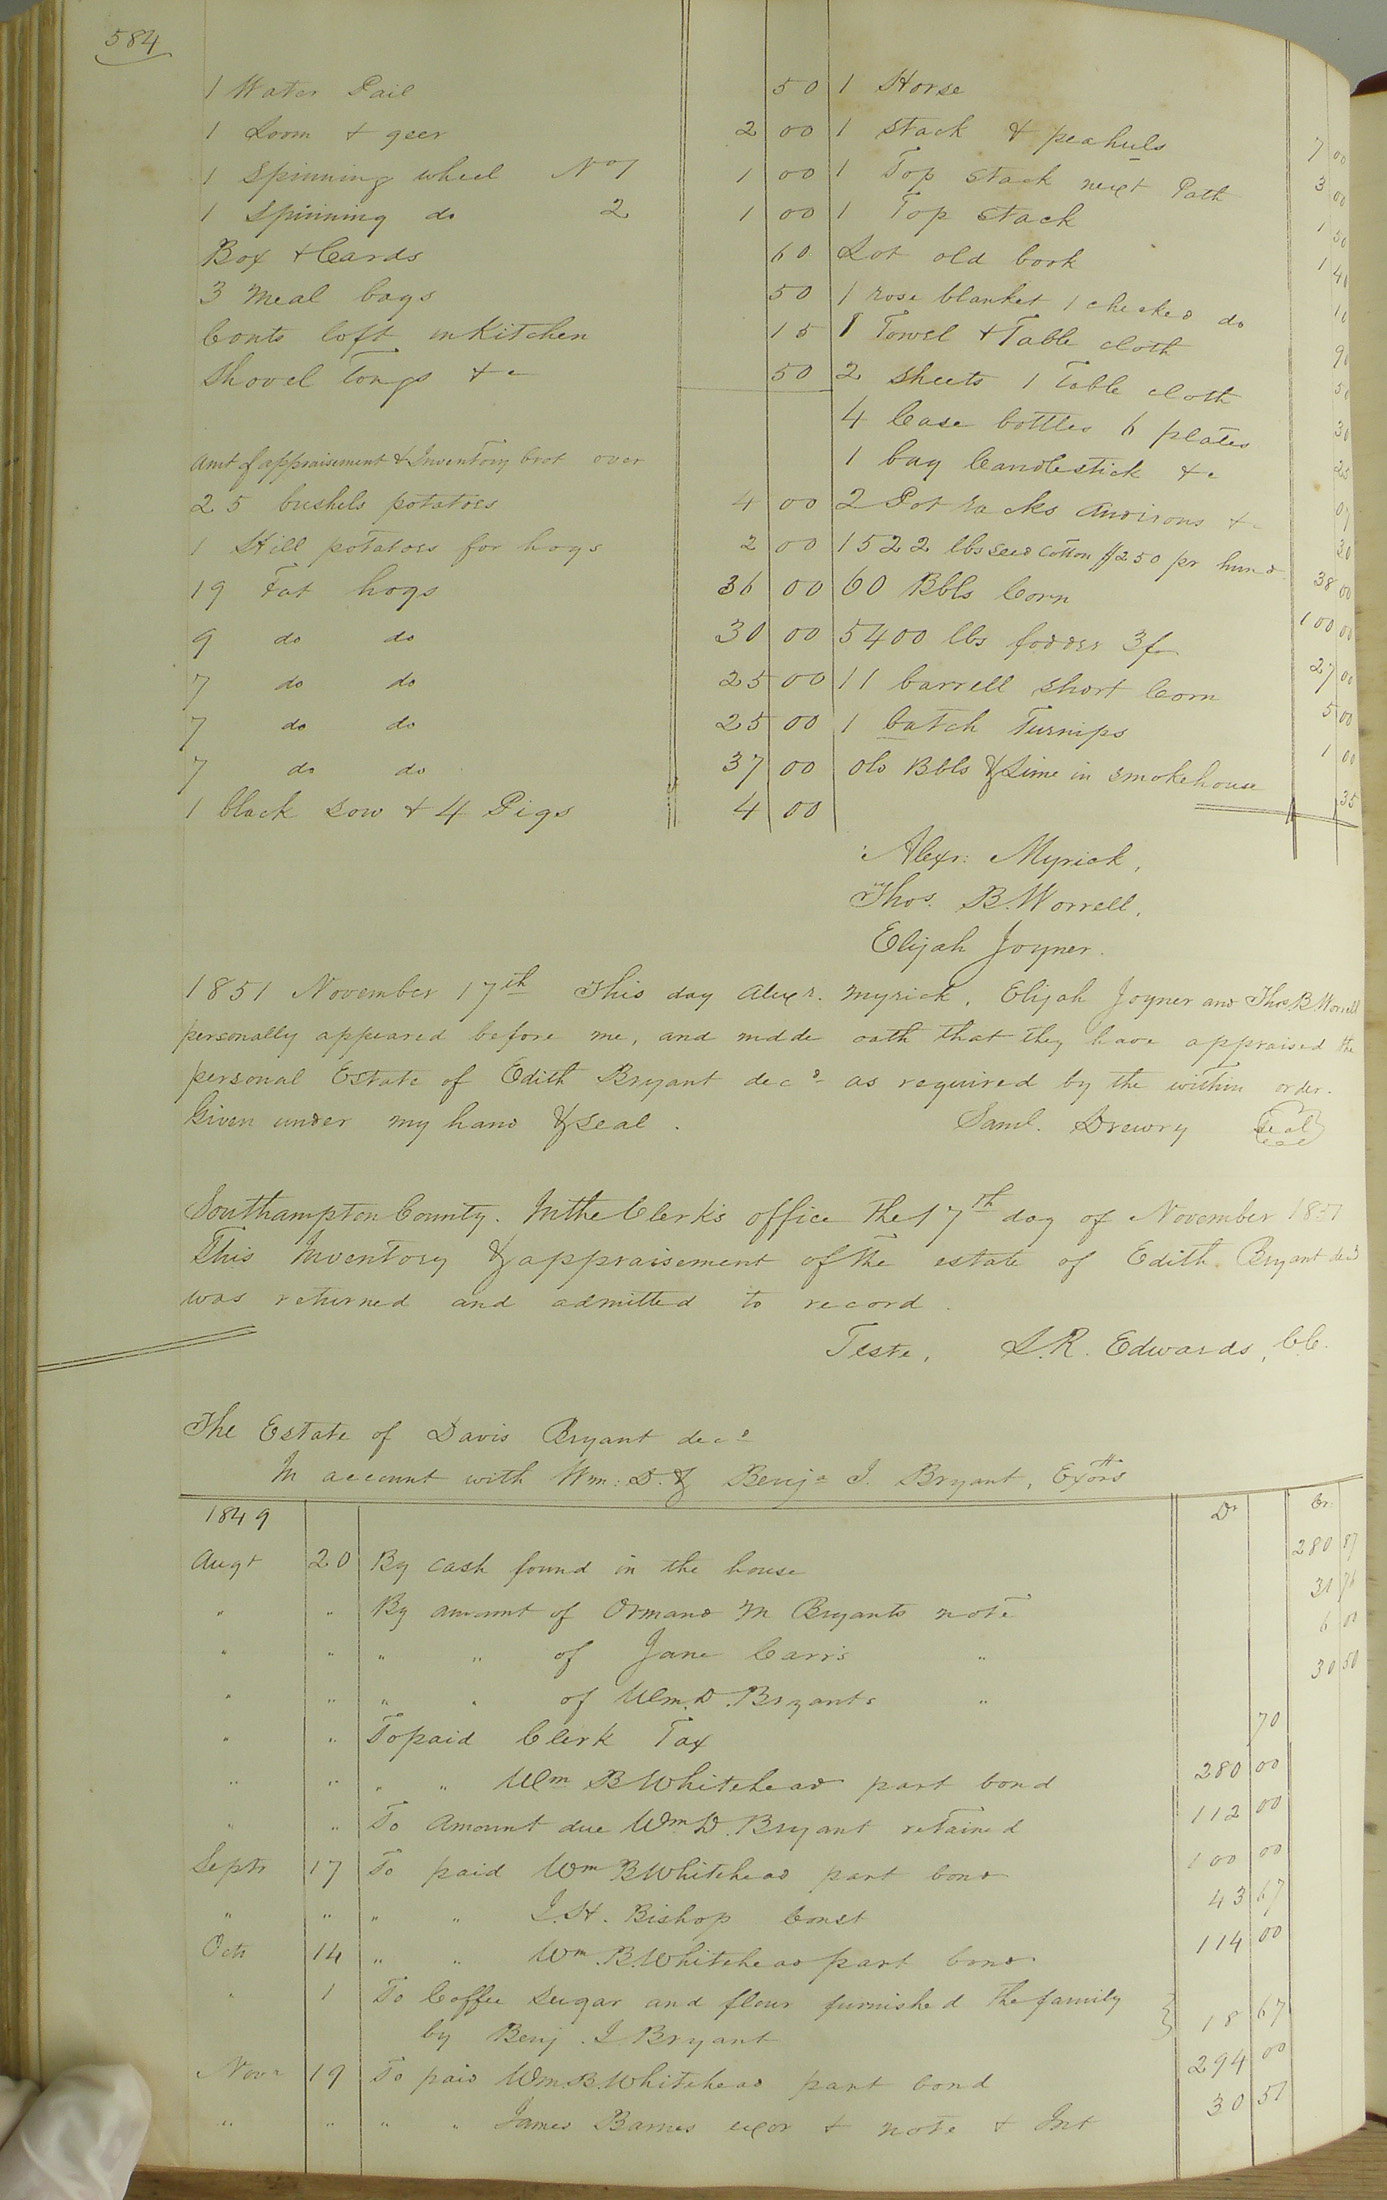 584
1 Water Pail 50
1 Loom & geer 2 00
1 Spinning wheel No 1 1 00
1 Spinning do 2 1 00
Box & Cards 60
3 Meal bags 50
Conts loft in Kitchen 15
Shovel Tongs &c 50
Amt of appraisement & Inventory brot over
25 bushels potatoes 4 00
1 Hill potatoes for hogs 2 00
19 Fat hogs 36 00
9 do do 30 00
7 do do 25 00
7 do do 25 00
7 do do 37 00
1 black Sow & 4 Pigs 4 00
1 Horse 7 00
1 Stack & peahuls 3 00
1 Top stack next Path 1 50
1 Top stack 1 40
Lot old book 10
1 rose blanket 1 checked do 90
1 Towel & Table cloth 50
2 Sheets 1 Table cloth 30
4 Case bottles 6 plates 25
1 bag Candlestick &c
2 Pot racks Andirons &c 30
1522 lbs seed Cotton $250 pr hund 38 00
60 Bbls Corn 100 00
5400 lbs fodder 27 00
11 barrell short Corn 5 00
1 batch Turnips 1 00
old Bbls & Lime in Smokehouse 35
Alexr: Myrick,
Thos. B. Worrell,
Elijah Joyner.
1851 November 17th This day Alexr. Myrick, Elijah Joyner and Thos B Worrell
personally appeared before me, and made oath that they have appraised the
personal Estate of Edith Bryant decd as required by the within order.
Given under my hand & seal. Saml. Drewry Seal
Southampton County. In the Clerk's office the 17th day of November 1851
This Inventory & appraisement of the estate of Edith Bryant decd
was returned and admitted to record.
Teste, L.R. Edwards, CC.
The Estate of Davis Bryant decd
In account with Wm: D. & Benja J. Bryant, Exors
1849 Dr Cr
Augt 20 By cash found in the house 280 87
" " By amount of Ormand M Bryants note 31 76
" " " " of Jane Carrs " 6 00
" " " " of Wm. D. Bryants " 30 50
" " To paid Clerk Tax 70
" " " " Wm B Whitehead part bond 280 00
" " To Amount due Wm D. Bryant retained 112 00
Septr 17 To paid Wm B Whitehead part bond 100 00
" " " " J. H. Bishop Const 43 67
Octr 14 " " Wm. B. Whitehead part bond 114 00
" 1 To Coffee Sugar and flour furnished the family
by Benj. J Bryant 18 67
Novr 19 To paid Wm. B. Whitehead part bond 294 00
" " " " James Barnes exor & note & Int 30 51